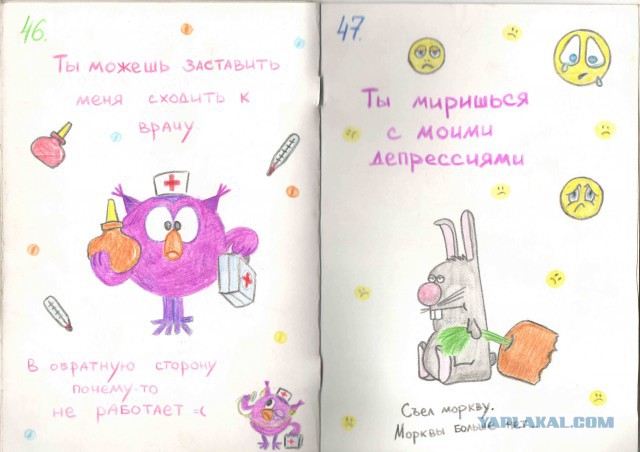 46.
Ты можешь заставить
меня сходить к
врачу
В обратную сторону
почему-то
не работает =(
47.
Ты миришься
с моими
депрессиями
Съел моркву.
Морквы больше нет.
YAPLAKAL.COM